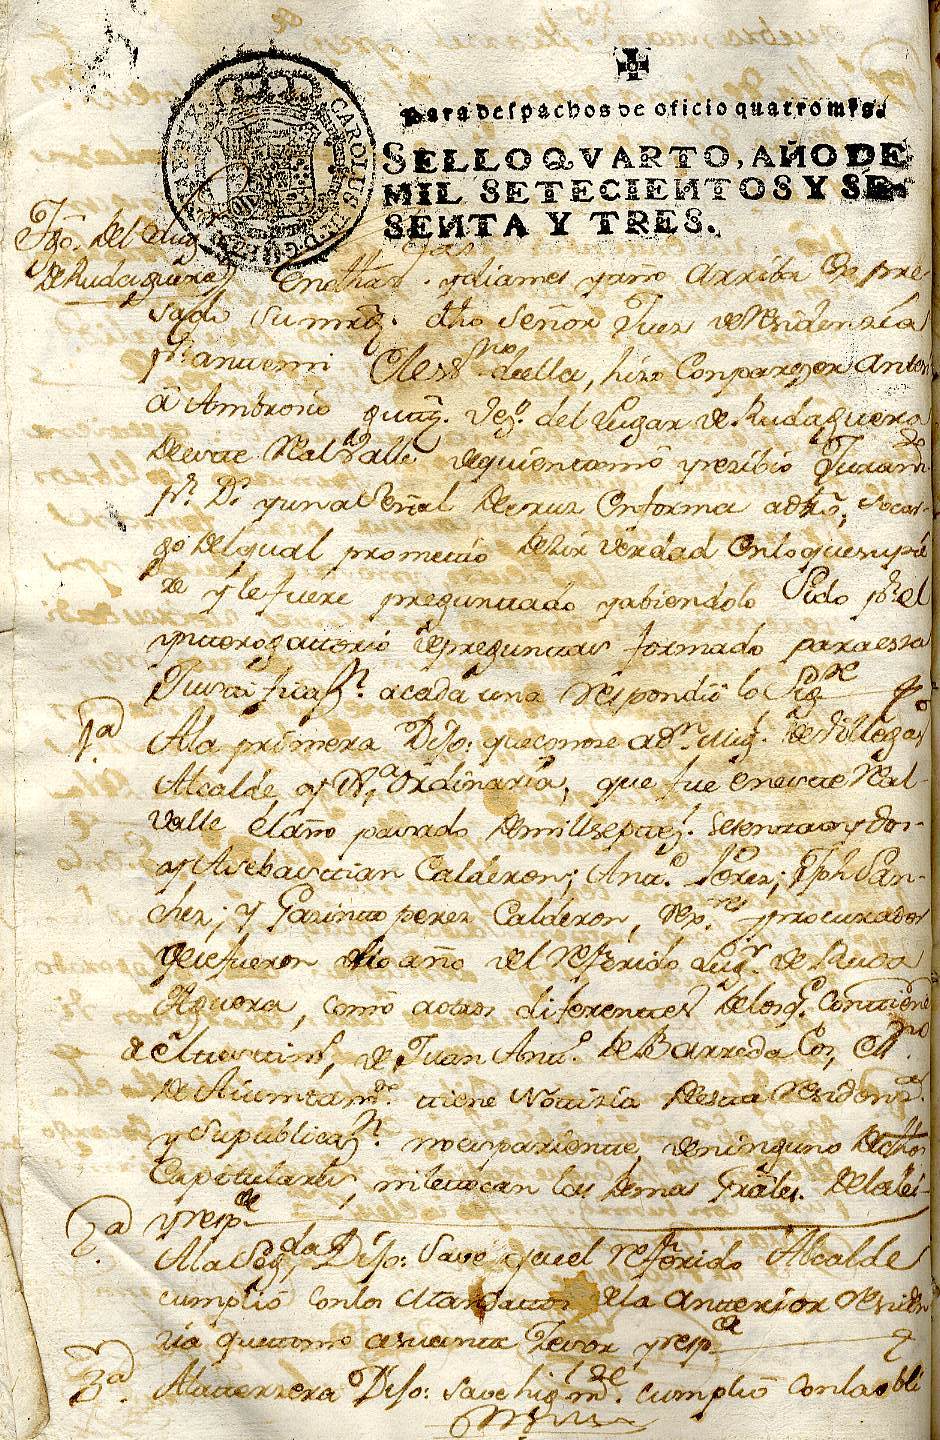 Para despachos de oficio quatro mrs.
SELLO QVARTO, AÑO DE
MIL SETECIENTOS Y SE-
SENTA Y TRES.
CAROLUS III D G
Tgo. del Lug
De Rudaguera
dias mes y año Arriba Expre
sado su mrd. dho Señor Juez de Residenzia
pr. antemi el essno. de ella, hizo Conparezer Antesi
à Ambrosio vezº. del Lugar de Rudaguera
De este Real Valle de quien tomó y rezibió Juramto
pr. Ds. y una Señal De cruz En forma a dro, so car-
go Del qual prometió Dezir verdad En lo que supie
re y le fuere preguntado y abiendolo Sido pr. el
ynterogattorio de preguntas formado para esta
Justificazn. a cada una Respondió lo Sigte
1ª
Ala primera Dijo: que conose a Dn. Mig. de Villegas
Alcalde, y Jª Ordinaria, que fue En este Real
Valle el año pasado De mill septezs. sesenta y dos
y A Sebasttian Calderon; Antº. Perez; Jph San-
chez; y Jazinto perez Calderon, Rexres y procurador
que fueron dho año del Referido Lugr. de Ruda
Aguera, como a otros diferentes De los q. Contiene
el testtimº, de Juan Antº. De Barreda Essno
De Aiuntamto. tiene Notizia De esta Residenª
y su publicazn. no es pariente, de ninguno De dhos
Capitulares, ni le tocan las Demas Grales. De la lei
y respde
2ª
Ala Segda Dijo: Save que el Referido Alcalde
cumplió Con los Mandattos De la Antterior Residen
zia que tomó y respde
3ª
Ala terzera Dijo: Save cumplió Con la obli